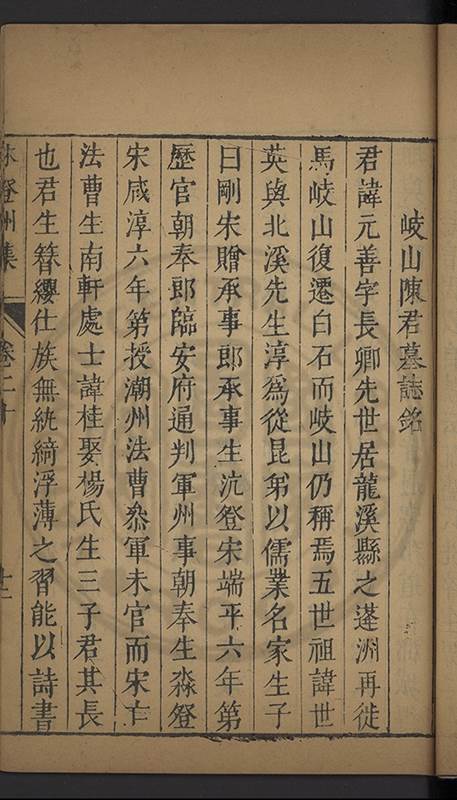 岐山陳君墓誌銘
君諱元善字長卿先世居龍溪縣之蓬洲再徙
馬岐山復遷白石而岐山仍稱焉五世祖諱世
英與北溪先生淳為從昆弟以儒業名家生子
曰剛宋贈承事郎承事生沆登宋端平六年第
歷官朝奉郎臨安府通判軍州事朝奉生淼登
宋咸淳六年第授潮州法曹叅軍未官而宋亡
法曹生南軒處士諱桂娶楊氏生三子君其長
也君生簪纓仕族無紈綺浮薄之習能以詩書
林登州集 卷二十 十二